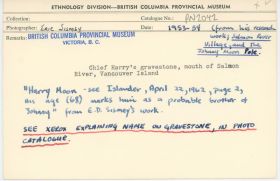 ETHNOLOGY DIVISION—BRITISH COLUMBIA PROVINCIAL MUSEUM
Collection: Catalogue No.: PN2042
Photographer: Earl Sismey Date: 1953-54 (from his research
BRITISH COLUMBIA PROVINCIAL MUSEUM work, Salmon River
Remarks: VICTORIA, B. C. Village, and the
Johnny Moon Pole.
Chief Harry's gravestone, mouth of Salmon
River, Vancouver Island
"Harry Moon - see Islander, April 22, 1962, page 2,
his age (68) marks him as a probable brother of
Johnny" from E.D. Sismey's work.
SEE XEROX EXPLAINING NAME ON GRAVESTONE, IN PHOTO
CATALOGUE.